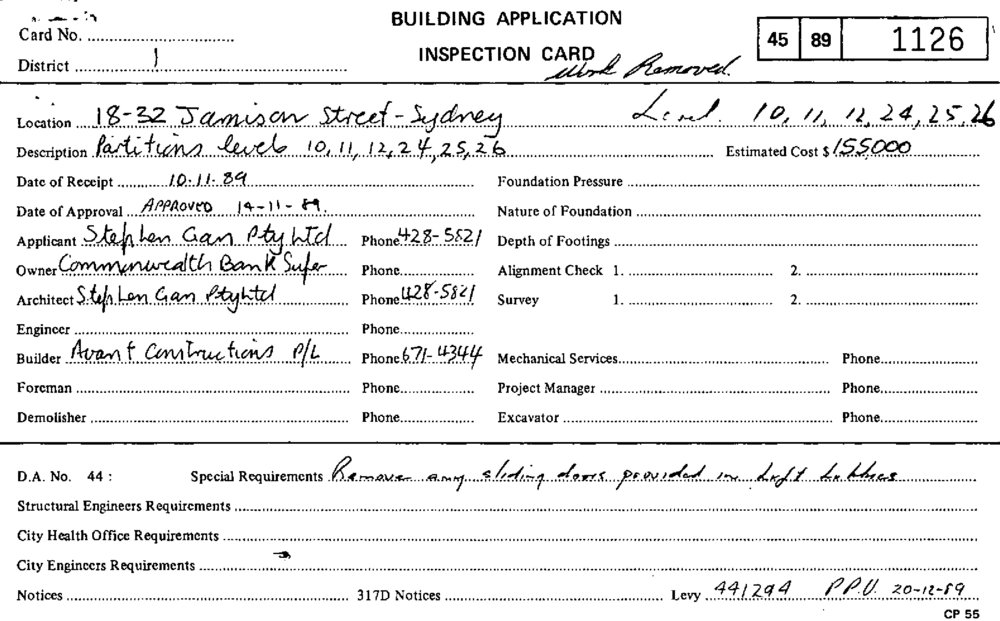 BUILDING APPLICATION
Card No.
INSPECTION CARD
45 89 1126
District 1
Work Removed.
Location 18-32 Jamison Street - Sydney Level. 10, 11, 12, 24, 25, 26
Description Partitions levels 10, 11, 12, 24, 25, 26 Estimated Cost $ 155000
Date of Receipt 10.11.89 Foundation Pressure
Date of Approval APPROVED 14-11-89. Nature of Foundation
Applicant Stephen Gan Pty Ltd Phone 428-5821 Depth of Footings
Owner Commonwealth Bank Super Phone Alignment Check 1. 2.
Architect Stephen Gan Pty Ltd Phone 428-5821 Survey 1. 2.
Engineer Phone
Builder Avant Constructions P/L Phone 671-4344 Mechanical Services Phone
Foreman Phone Project Manager Phone
Demolisher Phone Excavator Phone
D.A. No. 44 : Special Requirements Remove any sliding doors provided in Lift Lobbies
Structural Engineers Requirements
City Health Office Requirements
City Engineers Requirements
Notices 317D Notices Levy 441294 P.P.U. 20-12-89
CP 55